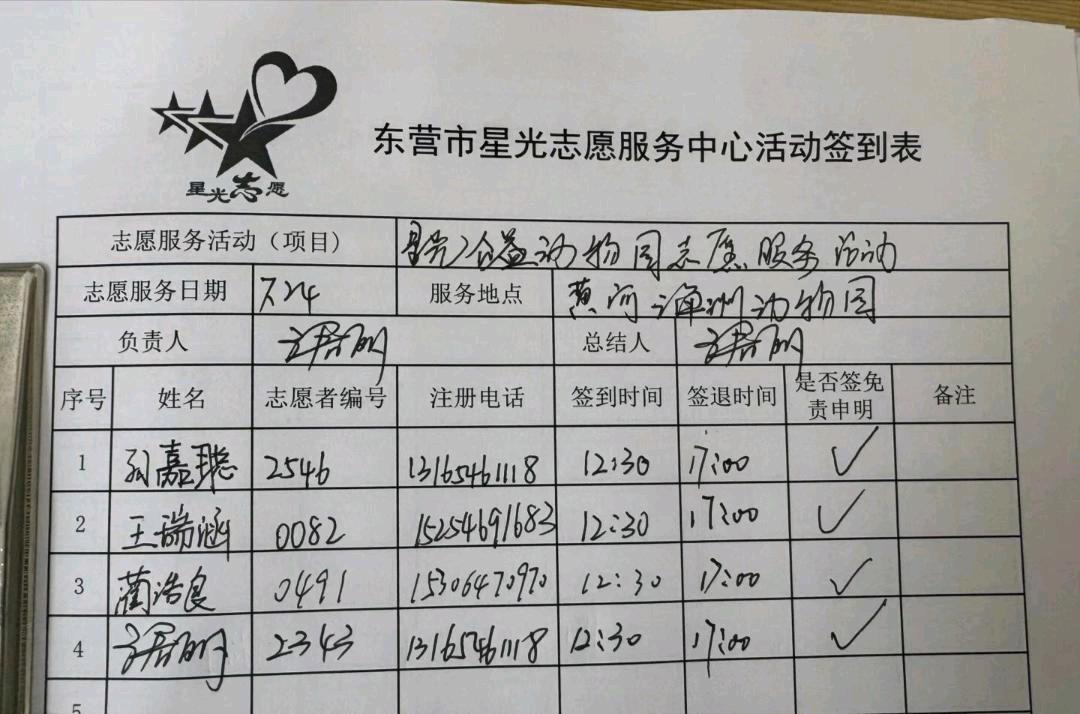 星光志愿
东营市星光志愿服务中心活动签到表
志愿服务活动（项目） 星光公益动物园志愿服务活动
志愿服务日期 7.24 服务地点 黄河海洲动物园
负责人 总结人
序号 姓名 志愿者编号 注册电话 签到时间 签退时间 是否签免责申明 备注
1 孙嘉聪 2546 13165461118 12:30 17:00 ✓
2 王瑞涵 0082 15254691683 12:30 17:00 ✓
3 蔺浩良 0491 15306470970 12:30 17:00 ✓
4 2343 13165461118 12:30 17:00 ✓
5